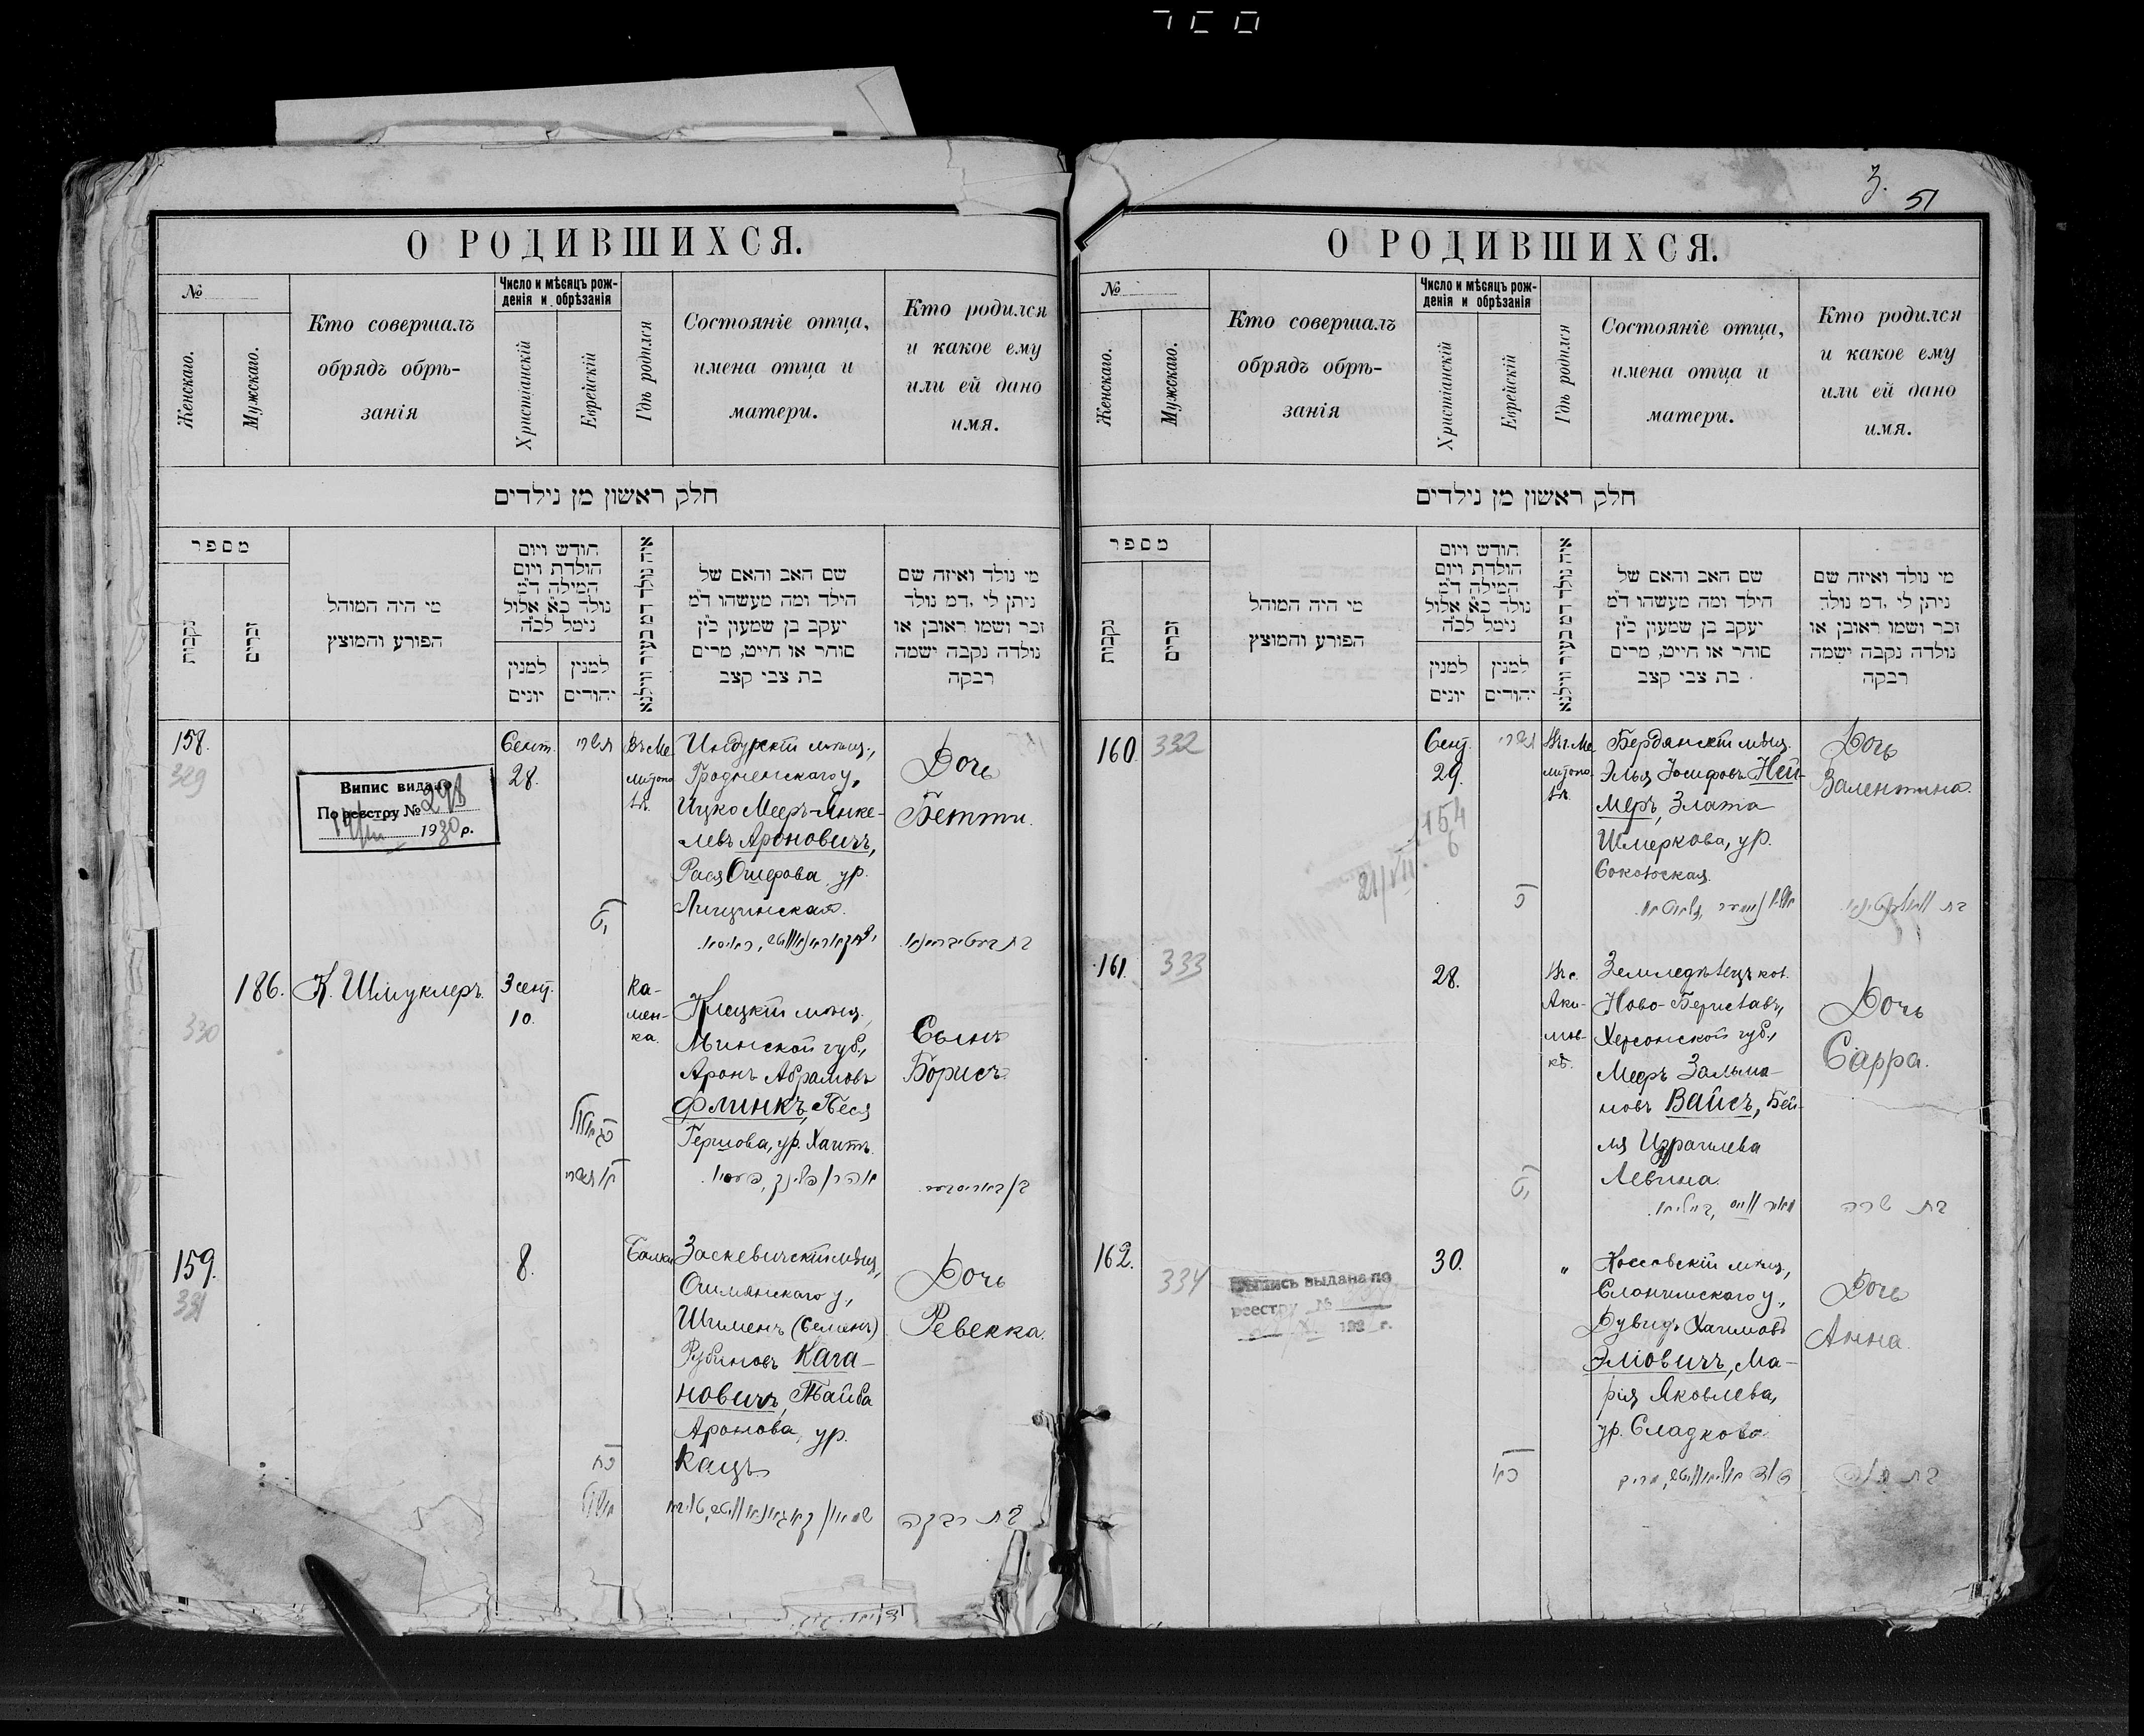 З.
51
О РОДИВШИХСЯ.
№
Женскаго.
Мужскаго.
Кто совершалъ
обрядъ обрѣ-
занія
Число и мѣсяцъ рож-
денія и обрѣзанія
Христіанскій
Еврейскій
Гдѣ родился
Состояніе отца,
имена отца и
матери.
Кто родился
и какое ему
или ей дано
имя.
חלק ראשון מן נילדים
מספר
נקבות
זכרים
מי היה המוהל
הפורע והמוצץ
חודש ויום
הולדת ויום
המילה ד"מ
נולד כ"א אלול
נימל לכ"ה
למנין
יונים
למנין
יהודים
איה נולד דמ בעיר ווילנא
שם האב והאם של
הילד ומה מעשהו ד"מ
יעקב בן שמעון כ"ץ
סוחר או חייט, מרים
בת צבי קצב
מי נולד ואיזה שם
ניתן לי ,דמ נולד
זכר ושמו ראובן או
נולדה נקבה ישמה
רבקה
158.
329
Випис видано
По реестру № 298
1930 р.
Сент.
28.
תשרי
Въ Ме
литопо
лѣ.
Индурскій мѣщ.,
Гродненскаго у,
Ицко Мееръ-Янке-
левъ Ароновичъ,
Рася Ошерова ур.
Лищинская.
Дочь
Бетти.
186.
330
К. Шмуклеръ.
3 сент.
10.
Ка-
мен-
ка.
Клецкій мѣщ.,
Минской губ.,
Аронъ Абрамовъ
Флинкъ, Песя
Гершова, ур. Хаитъ.
Сынъ
Борисъ.
159.
331
8.
Балки
Заскевичскій мѣщ.,
Ошмянскаго у,
Шименъ (Семенъ)
Рубиновъ Кага-
новичъ, Тайба
Аронова, ур.
Кацъ
Дочь
Ревекка.
בת רבקה
О РОДИВШИХСЯ.
№
Женскаго.
Мужскаго.
Кто совершалъ
обрядъ обрѣ-
занія
Число и мѣсяцъ рож-
денія и обрѣзанія
Христіанскій
Еврейскій
Гдѣ родился
Состояніе отца,
имена отца и
матери.
Кто родился
и какое ему
или ей дано
имя.
חלק ראשון מן נילדים
מספר
נקבות
זכרים
מי היה המוהל
הפורע והמוצץ
חודש ויום
הולדת ויום
המילה ד"מ
נולד כ"א אלול
נימל לכ"ה
למנין
יונים
למנין
יהודים
איה נולד דמ בעיר ווילנא
שם האב והאם של
הילד ומה מעשהו ד"מ
יעקב בן שמעון כ"ץ
סוחר או חייט, מרים
בת צבי קצב
מי נולד ואיזה שם
ניתן לי ,דמ נולד
זכר ושמו ראובן או
נולדה נקבה ישמה
רבקה
160.
332
Сент.
29.
תשרי
154
6
21/VII
Въ Ме
литопо
лѣ.
Бердянскій мѣщ.
Элья Іосифовъ Ней-
меръ, Злата
Шмеркова, ур.
Сокольская.
Дочь
Валентина.
161.
333
28.
Въ с.
Аки-
мов-
кѣ.
Земледѣлецъ кол.
Ново-Бериславъ,
Херсонской губ.,
Мееръ Зальма-
новъ Вайсъ, Бей-
ля Израилева
Левина.
Дочь
Сарра.
בת שרה
162.
334
Выпись выдана по
реестру №
192 г.
30.
"
Коссовскій мѣщ.,
Слонимскаго у,
Дувидъ Хаимовъ
Эліовичъ, Ма-
рія Яковлева,
ур. Сладкова
Дочь
Анна.